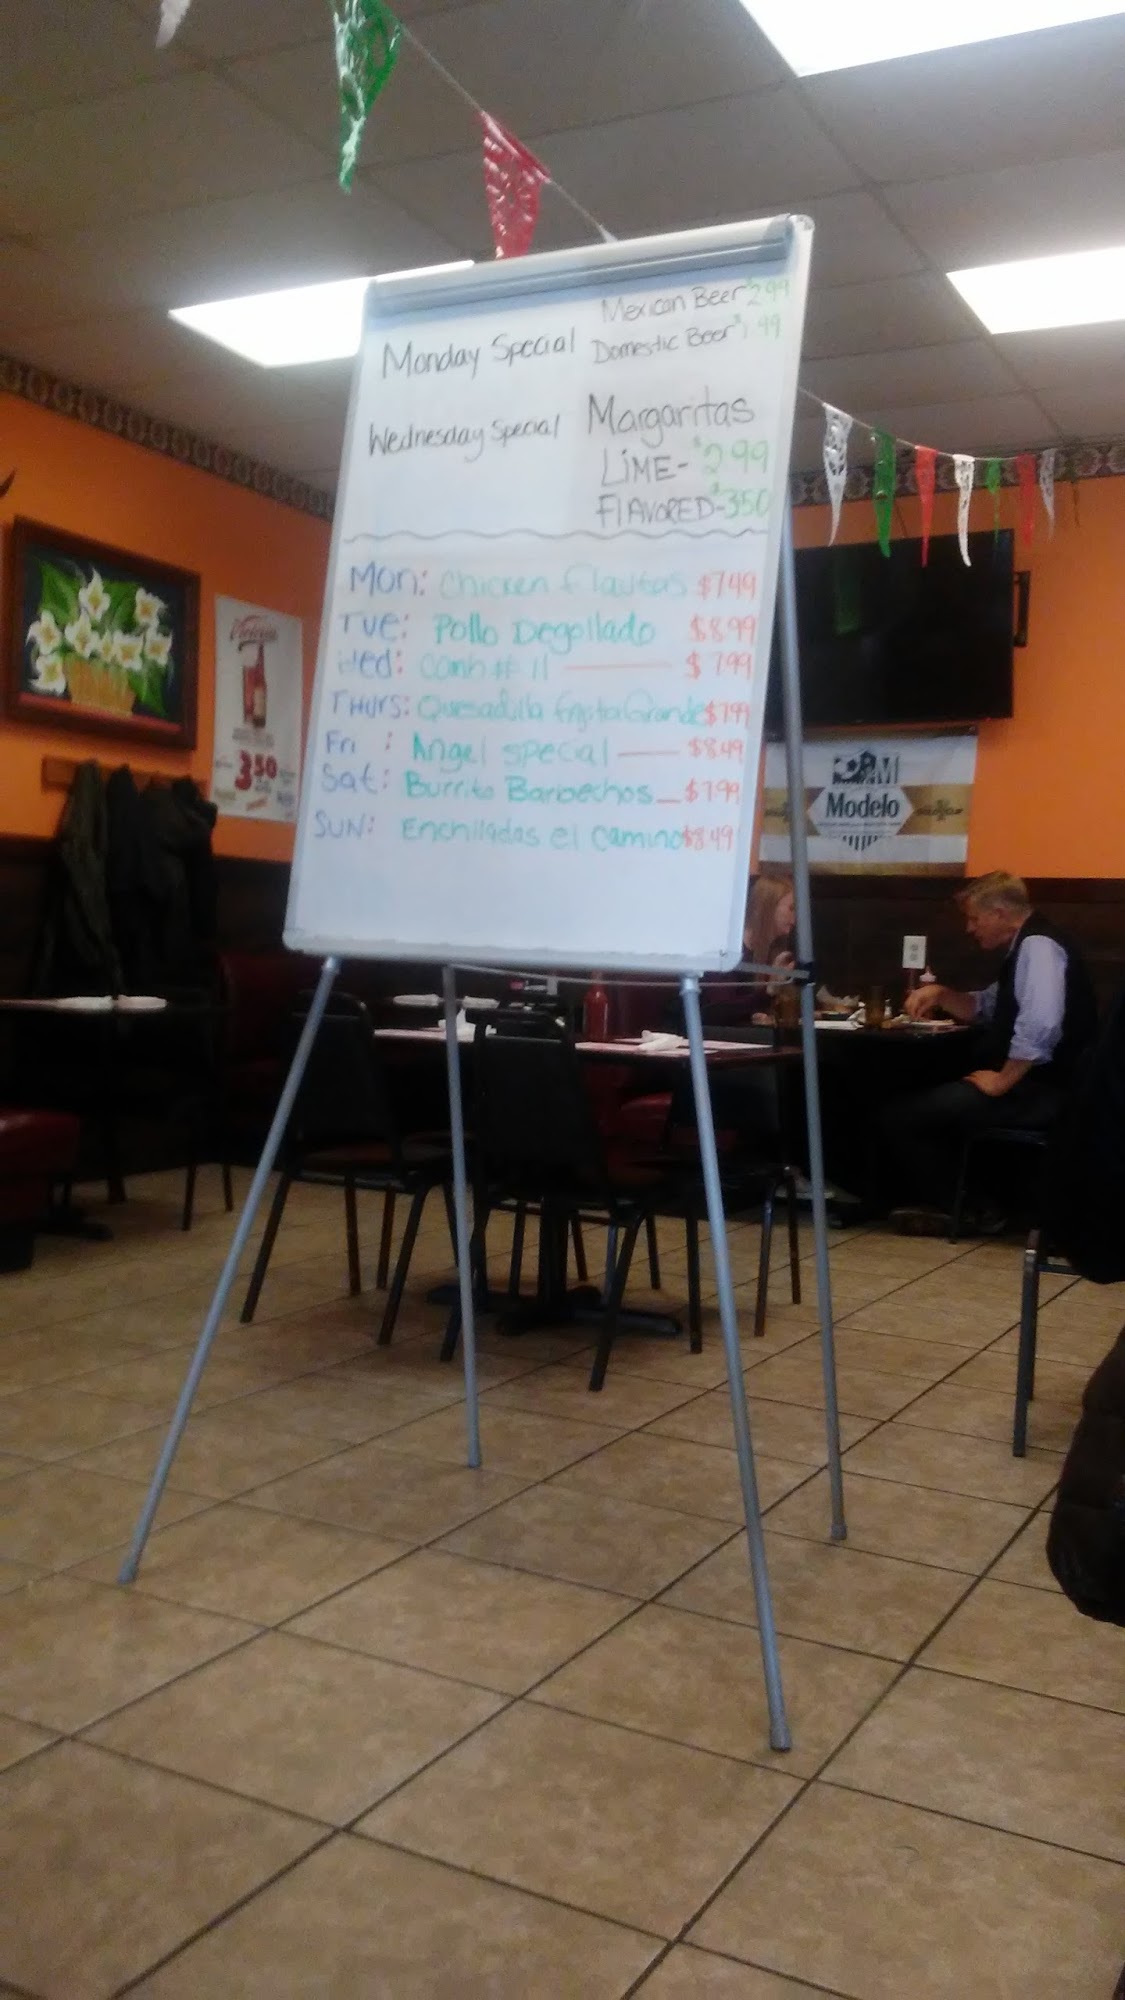 Monday Special
Mexican Beer $2.99
Domestic Beer $1.99
Wednesday Special
Margaritas
LiME- $2.99
FlAVORED- $350
Mon: Chicken Flautas $7.49
TUE: Pollo Degollado $8.99
Wed: Comb # 11 $7.99
THURS: Quesadilla Fajita Grande $7.99
Fri : Angel Special $8.49
Sat: Burrito Barbechos $7.99
SUN: Enchiladas el Camino $8.49
Victoria
350
Modelo